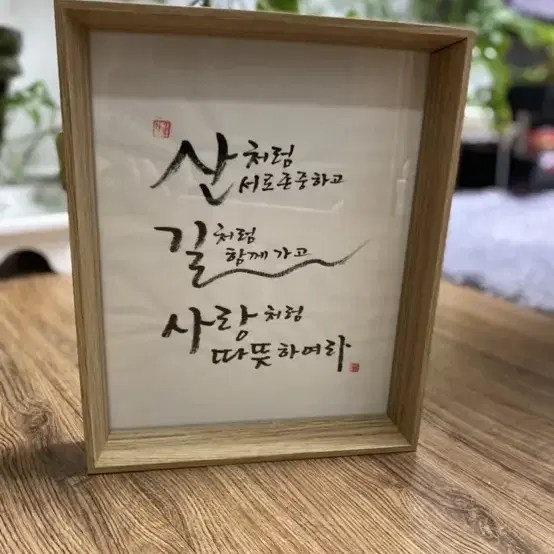 산처럼
서로존중하고
길처럼
함께 가고
사랑처럼
따뜻하여라